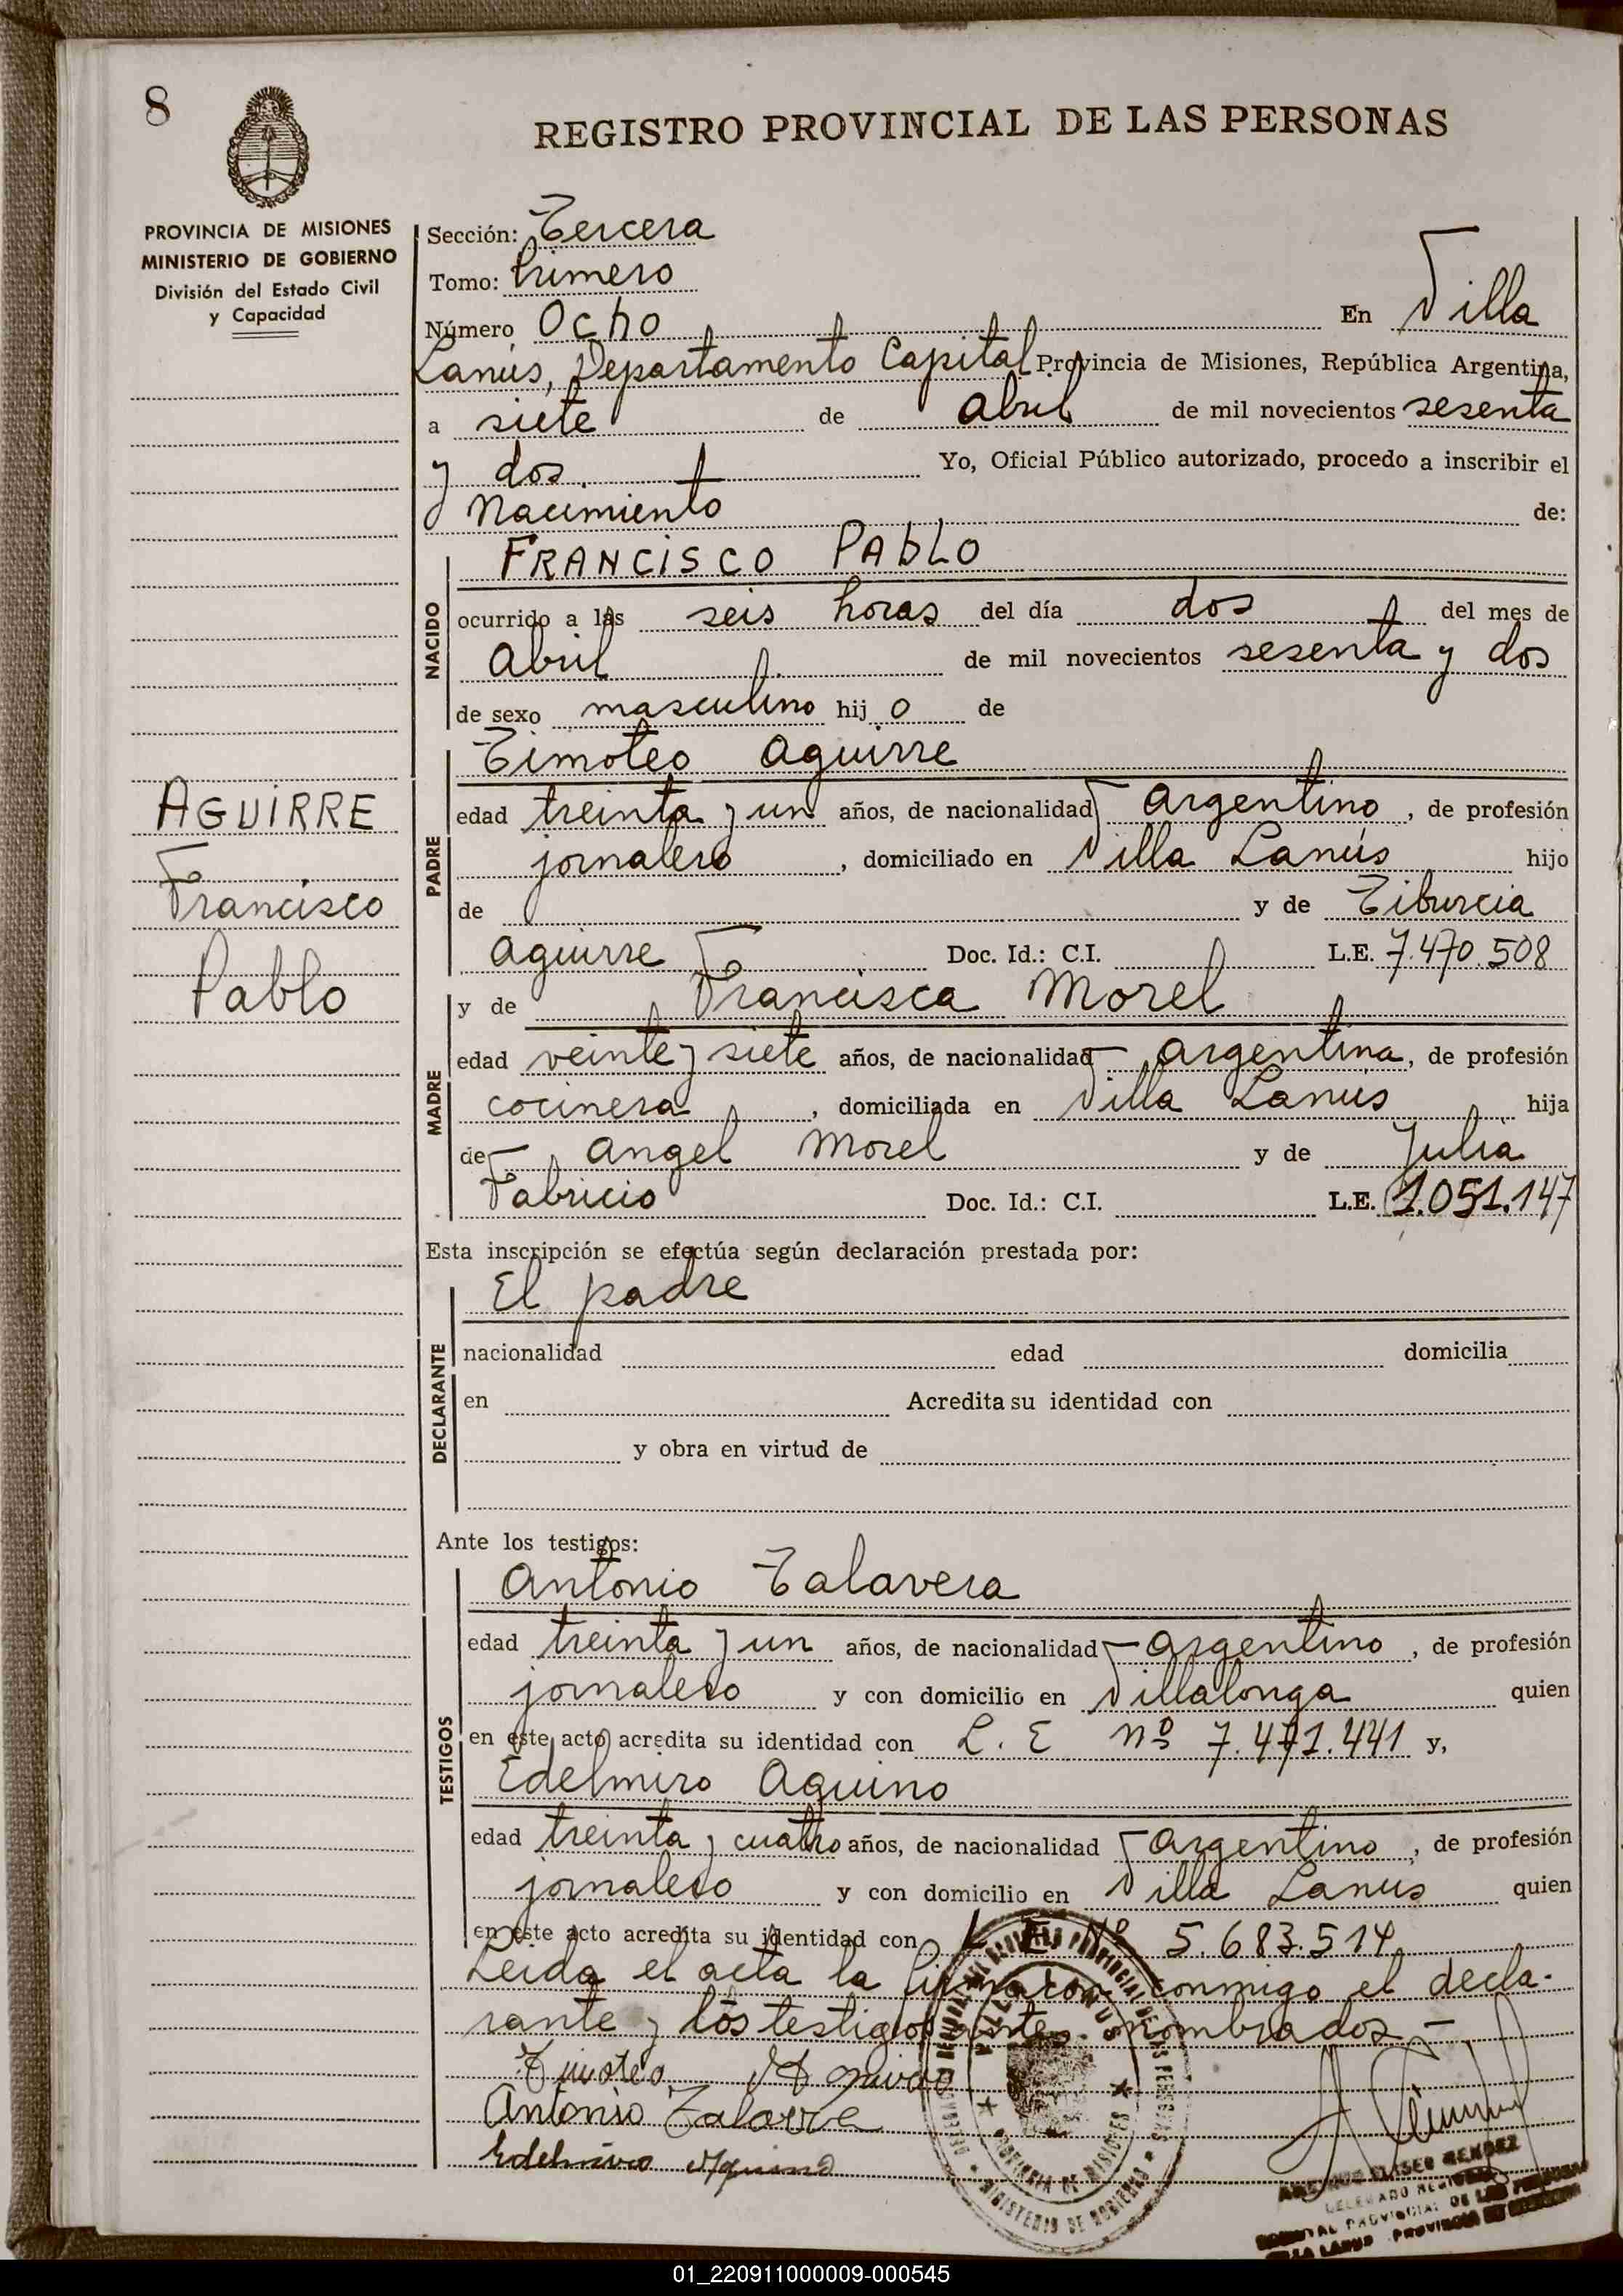 8
REGISTRO PROVINCIAL DE LAS PERSONAS
PROVINCIA DE MISIONES
MINISTERIO DE GOBIERNO
División del Estado Civil
y Capacidad
Sección: Tercera
Tomo: Primero
Número Ocho En Villa
Lanús, Departamento Capital Provincia de Misiones, República Argentina,
a siete de abril de mil novecientos sesenta
y dos. Yo, Oficial Público autorizado, procedo a inscribir el
Nacimiento de:
NACIDO
FRANCISCO PABLO
ocurrido a las seis horas del día dos del mes de
Abril de mil novecientos sesenta y dos
de sexo masculino hij o de
AGUIRRE
Francisco
Pablo
PADRE
Timoteo Aguirre
edad treinta y un años, de nacionalidad argentino, de profesión
jornalero, domiciliado en Villa Lanús hijo
de y de Tiburcia
Aguirre Doc. Id.: C.I. L.E. 7.470.508
MADRE
y de Francisca Morel
edad veinte y siete años, de nacionalidad argentina, de profesión
cocinera, domiciliada en Villa Lanús hija
de Angel Morel y de Julia
Fabricio Doc. Id.: C.I. L.E. 1.051.147
Esta inscripción se efectúa según declaración prestada por:
DECLARANTE
El padre
nacionalidad edad domicilia
en Acredita su identidad con
y obra en virtud de
Ante los testigos:
TESTIGOS
Antonio Talavera
edad treinta y un años, de nacionalidad argentino, de profesión
jornalero y con domicilio en Villalonga quien
en este acto acredita su identidad con L. E nº 7.471.441 y,
Edelmiro Aquino
edad treinta y cuatro años, de nacionalidad argentino, de profesión
jornalero y con domicilio en Villa Lanus quien
en este acto acredita su identidad con L E Nº 5.683.514
Leida el acta la firmaron conmigo el decla-
rante y los testigos antes nombrados.-
Timoteo Aguirre
Antonio
Edelmiro Aquino
PROVINCIA DE MISIONES
MINISTERIO DE GOBIERNO
ELISEO MENDEZ
DELEGADO REGIONAL
PROVINCIAL DE LAS PERSONAS
VILLA LANUS PROVINCIA DE MISIONES
01_220911000009-000545